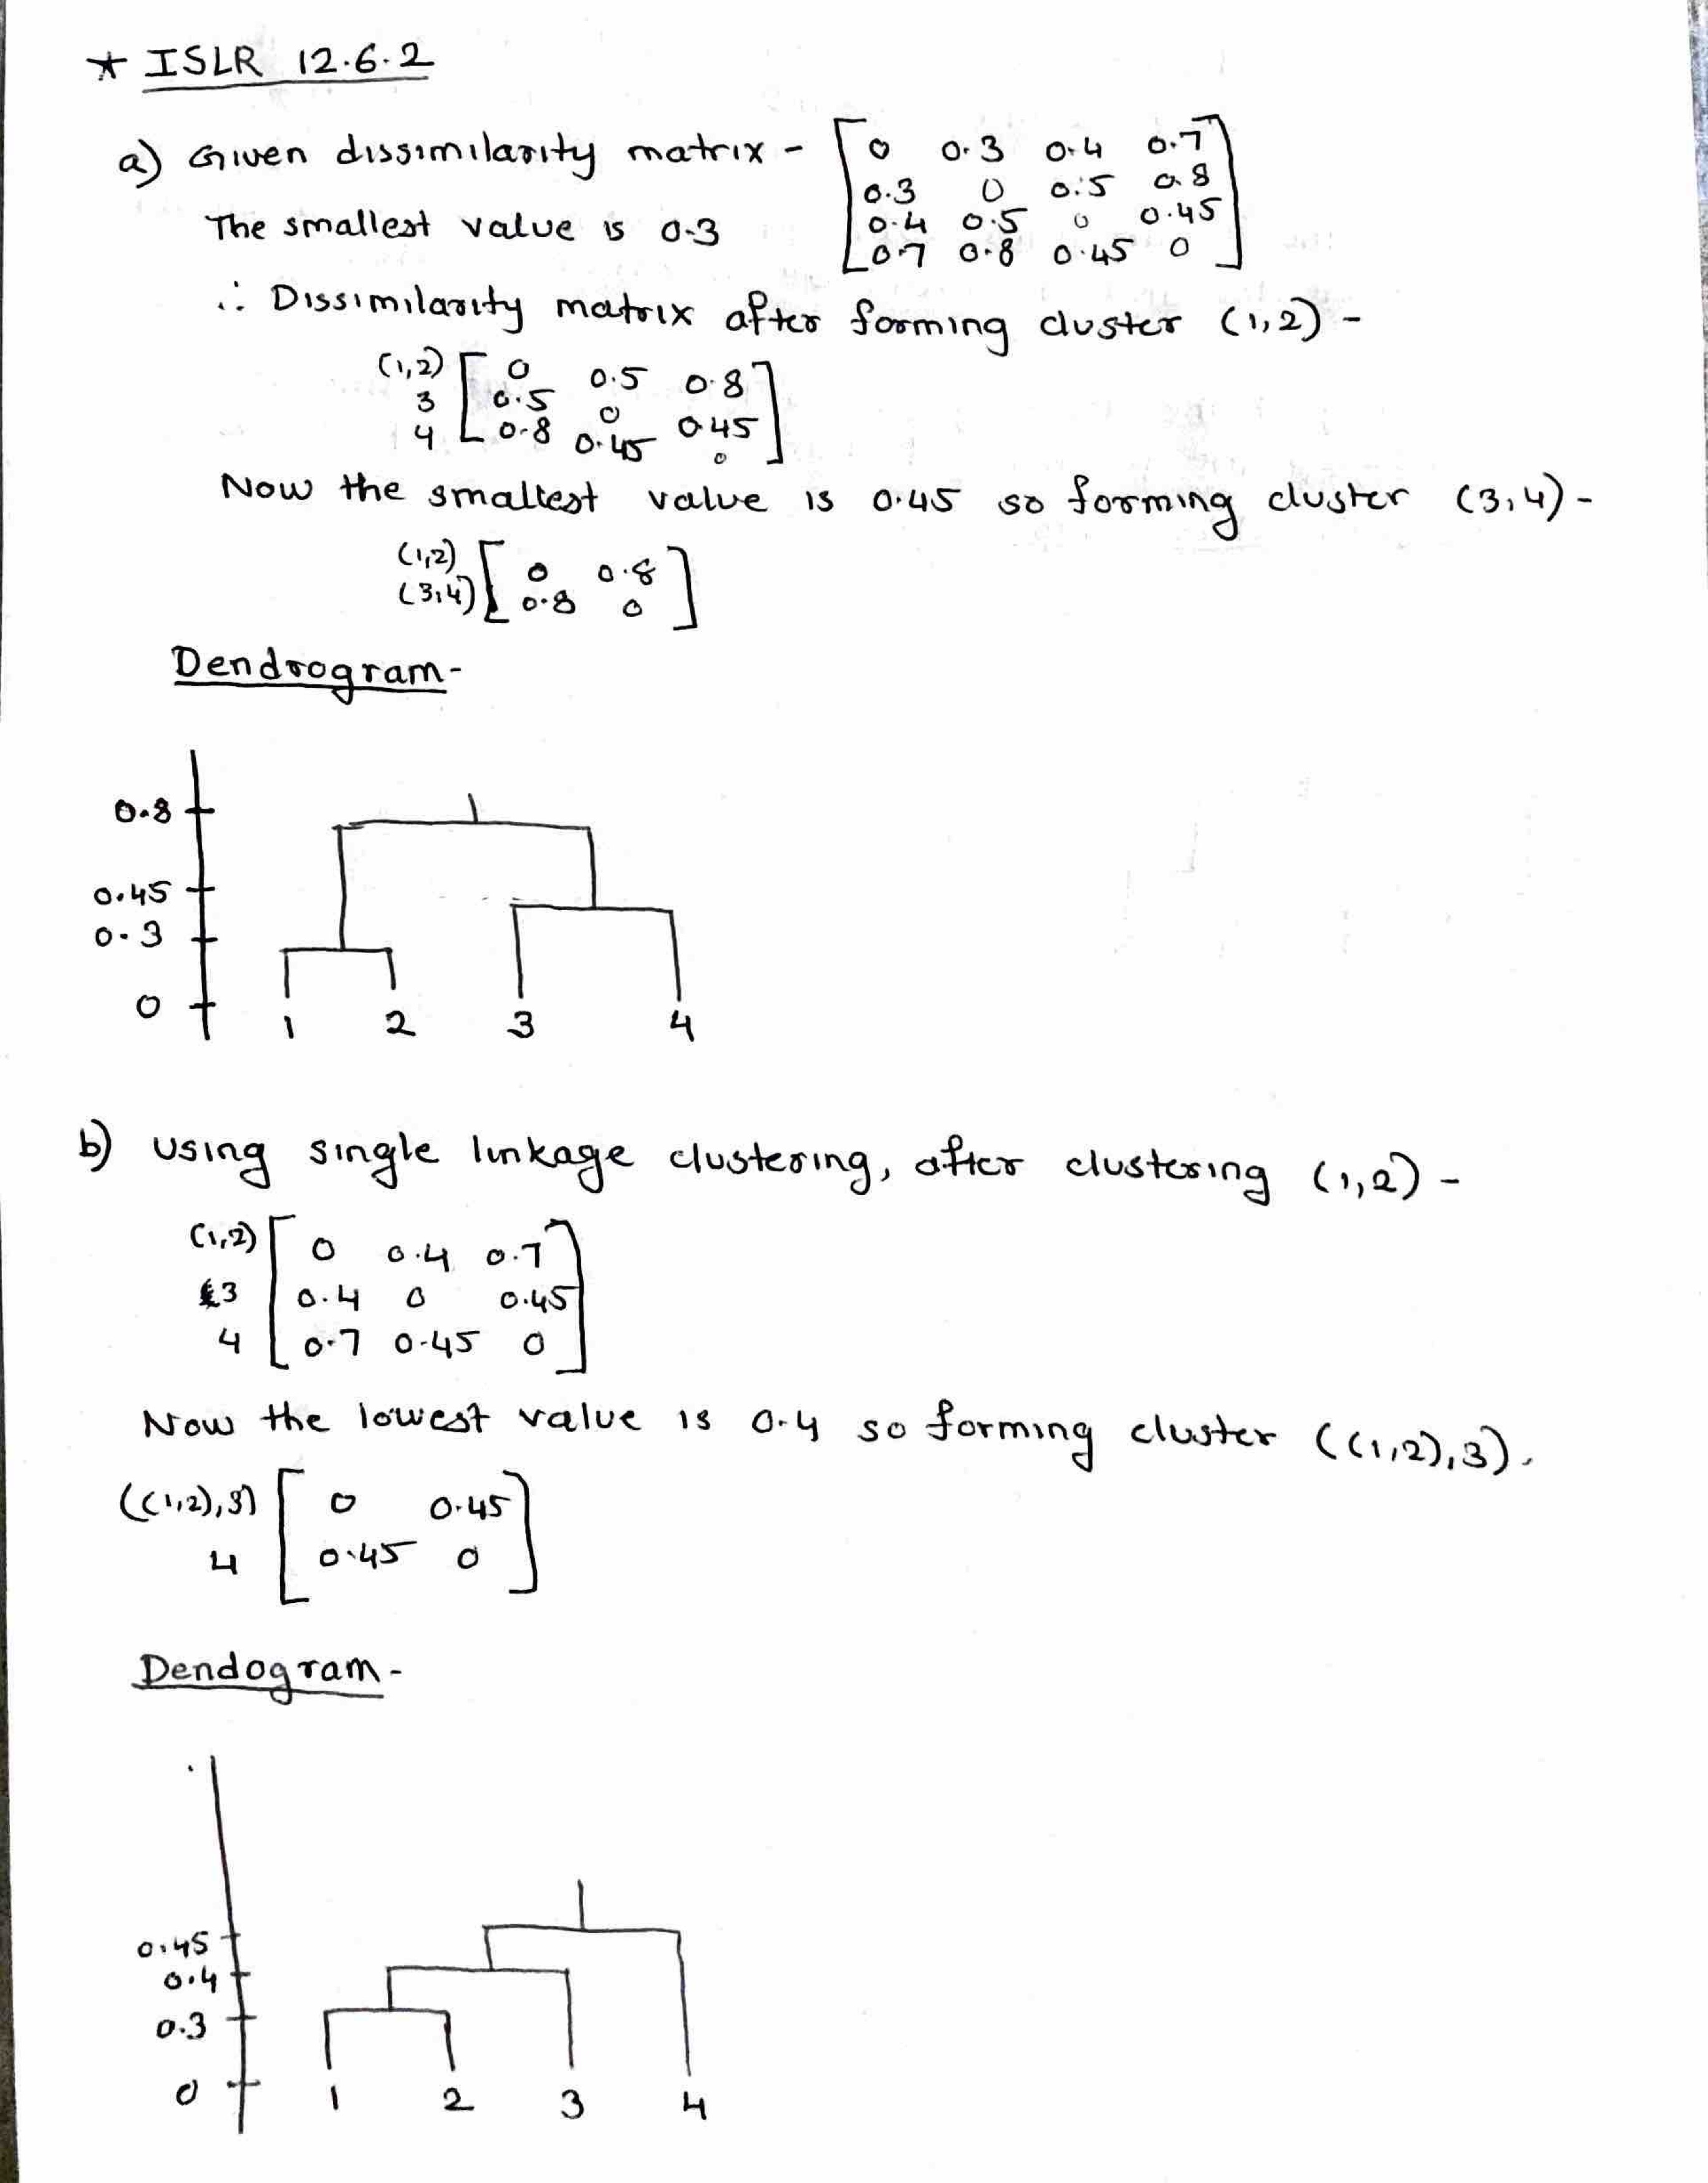 * ISLR 12.6.2
a) Given dissimilarity matrix - [ 0 0.3 0.4 0.7
0.3 0 0.5 0.8
The smallest value is 0.3 0.4 0.5 0 0.45
0.7 0.8 0.45 0 ]
∴ Dissimilarity matrix after forming cluster (1,2) -
(1,2) [ 0 0.5 0.8
3 0.5 0 0.45
4 0.8 0.45 0 ]
Now the smallest value is 0.45 so forming cluster (3,4) -
(1,2) [ 0 0.8
(3,4) 0.8 0 ]
Dendrogram-
0.8
0.45
0.3
0
1 2 3 4
b) Using single linkage clustering, after clustering (1,2) -
(1,2) [ 0 0.4 0.7
3 0.4 0 0.45
4 0.7 0.45 0 ]
Now the lowest value is 0.4 so forming cluster ((1,2),3).
((1,2),3) [ 0 0.45
4 0.45 0 ]
Dendogram-
0.45
0.4
0.3
0
1 2 3 4